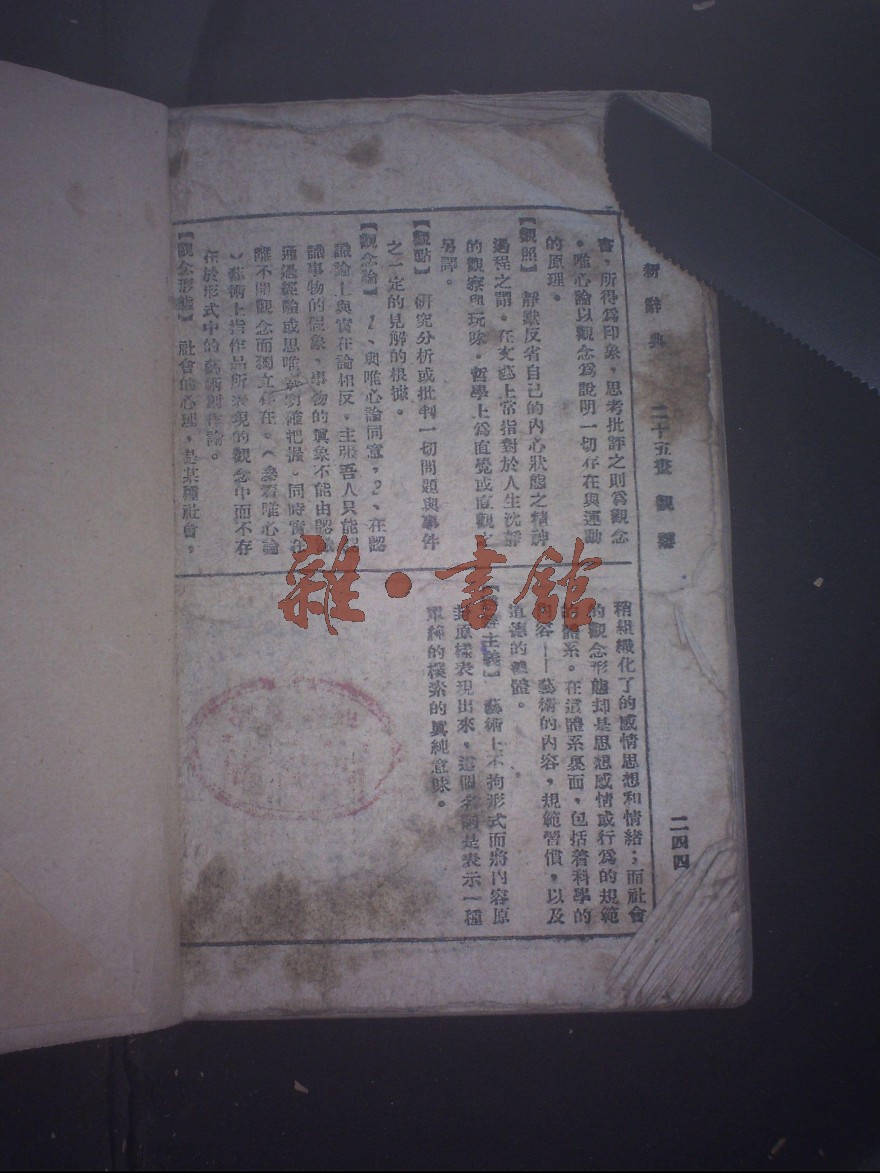 新辭典 二十五畫 觀 二四四
書，所得爲印象，思考批評之則爲觀念
。唯心論以觀念爲說明一切存在與運動
的原理。
【觀照】 靜默反省自己的內心狀態之精神
過程之謂。在文藝上常指對於人生沈靜
的觀察與玩味。哲學上爲直覺或直觀之
另譯。
【觀點】 研究分析或批判一切問題與事件
之一定的見解的根據。
【觀念論】 1、與唯心論同意，2、在認
識論上與實在論相反。主張吾人只能認
識事物的假象，事物的眞象不能由認識
通過經驗或思惟 確把握。同時實在
離不開觀念而獨立存在。（參看唯心論
）藝術上指作品所表現的觀念中而不存
在於形式中的藝術創作論。
【觀念形態】 社會的心理，是某種社會，
稍組織化了的感情思想和情緒；而社會
的觀念形態却是思想感情或行爲的規範
的體系。在這體系裏面，包括著科學的
內容——藝術的內容，規範習慣，以及
道德的總體。
主義】 藝術上不拘形式而將內容原
封原樣表現出來，這個名詞是表示一種
單純的樸素的眞純意味。
雜·書館